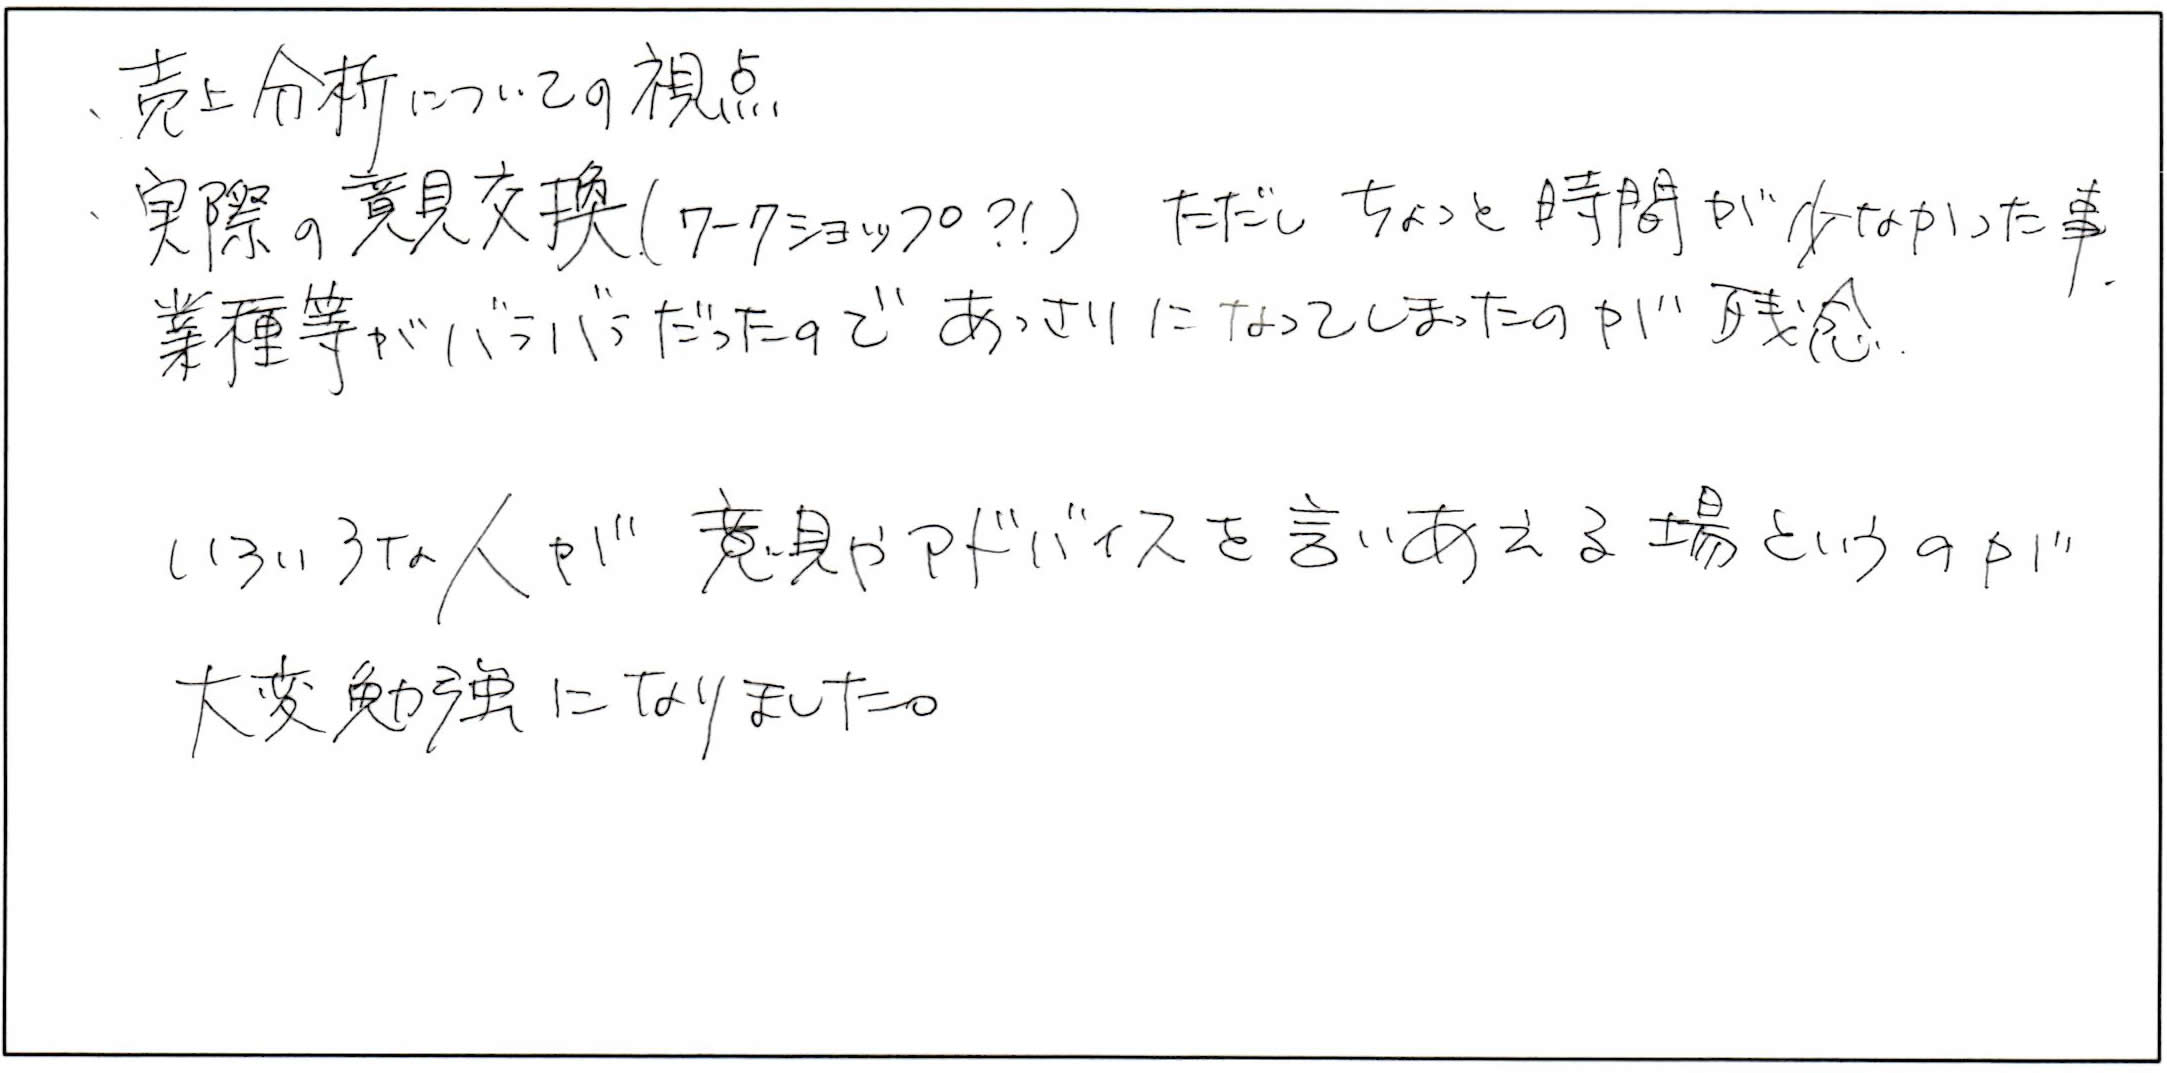 、売上分析についての視点
、実際の意見交換(ワークショップ?!) ただし ちょっと時間が少なかった事.
業種等がバラバラだったので あっさりになってしまったのが 残念.
いろいろな人が 意見やアドバイスを言いあえる場というのが
大変勉強になりました。